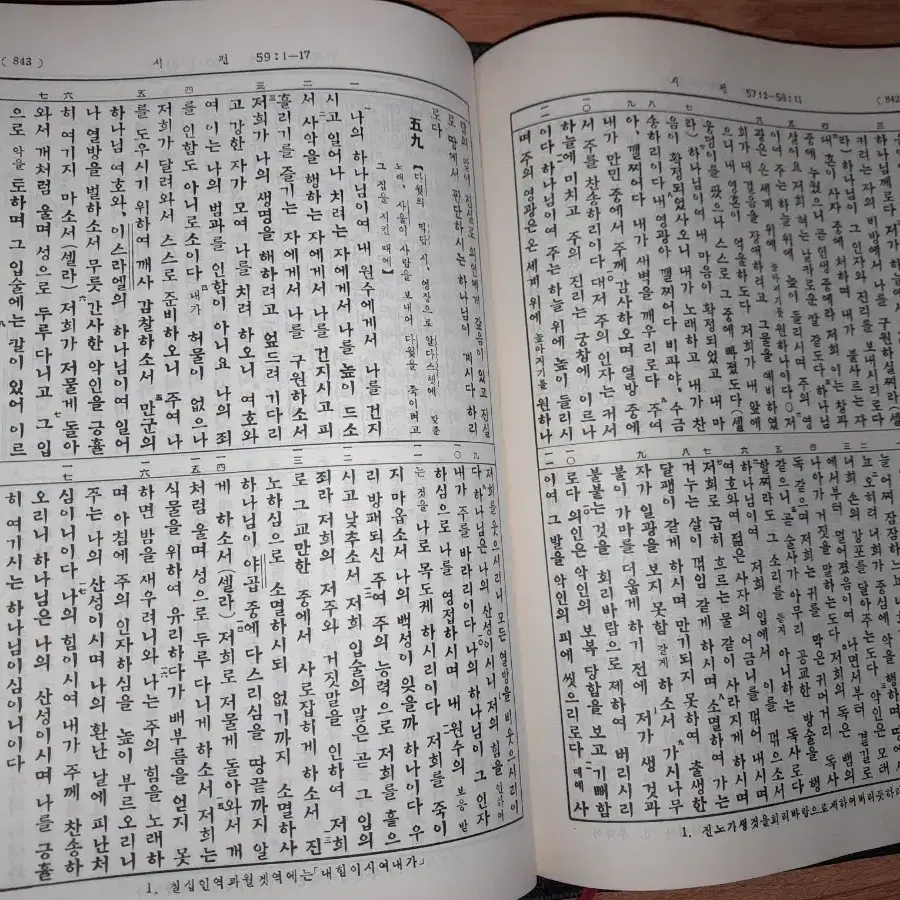 (842
시 편
57:12—58:11
내 혼이 사자 중에 처하며 내가 불사르는
중에 누웠으니 곧 인생 중에라 저희 이는 창과
살이요 저희 혀는 날카로운 칼 같도다
주는 하늘 위에 높이 들리시며 주의 영
광은 온 세계 위에 높아지기를 원하나이다 저
희가 내 걸음을 장애하려고 그물을 예비하였
으니 내 영혼이 억울하도다 저희가 내 앞에
웅덩이를 팠으나 스스로 그 중에 빠졌도다(셀
라) 하나님이여 내 마음이 확정되었고 내 마
음이 확정되었사오니 내가 노래하고 내가 찬
송하리이다 내 영광아 깰찌어다 비파야, 수금
아, 깰찌어다 내가 새벽을 깨우리로다 주여
내가 만민 중에서 주께 감사하오며 열방 중에
서 주를 찬송하리이다 대저 주의 인자는 커서
하늘에 미치고 주의 진리는 궁창에 이르나
이다 하나님이여 주는 하늘 위에 높이 들리시
며 주의 영광은 온 세계 위에 높아지기를 원하나
에서부터 멀어졌음이여 나면서부터 곁길로
나아가 거짓을 말하는도다 저희의 독은 뱀의
독 같으며 저희는 귀를 막은 귀머거리 독사
같으니 곧 술사가 아무리 공교한 방술을 행
할찌라도 그 소리를 듣지 아니하는 독사로다
하나님이여 저희 입에서 이를 꺾으소서
여호와여 젊은 사자의 어금니를 꺾어 내시며
저희로 급히 흐르는 물 같이 사라지게 하시며
겨누는 살이 꺾임 같게 하시며 소멸하여 가는
달팽이 같게 하시며 만기되지 못하여 출생한
자가 일광을 보지 못함 같게 하소서 가시나무
불이 가마를 더웁게 하기 전에 저가 생 것과
불붙는 것을 회리바람으로 제하여 버리시리
로다 의인은 악인의 보복 당함을 보고 기뻐함
이여 그 발을 악인의 피에 씻으리로다 때에 사
1. 진노가 생것을 회리바람으로 제하여 버리듯하리
(843)
시 편
59:1—17
람의 말이 진실로 의인에게 갚음이 있고 진실
로 땅에서 판단하시는 하나님이 계시다 하리
로다
五九
[다윗의 믹담 시, 영장으로 알다스헷에 맞춘
노래, 사울이 사람을 보내어 다윗을 죽이려고
그 집을 지킨 때에]
나의 하나님이여 내 원수에게서 나를 건지
시고 일어나 치려는 자에게서 나를 높이 드소
서 사악을 행하는 자에게서 나를 건지시고 피
흘리기를 즐기는 자에게서 나를 구원하소서
저희가 나의 생명을 해하려고 엎드려 기다리
고 강한 자가 모여 나를 치려 하오니 여호와
여 이는 나의 범과를 인함이 아니요 나의 죄
를 인함도 아니로소이다 내가 허물이 없으나
저희가 달려와서 스스로 준비하오니 주여 나
를 도우시기 위하여 깨사 감찰하소서 만군의
하나님 여호와, 이스라엘의 하나님이여 일어
나 열방을 벌하소서 무릇 간사한 악인을 긍휼
히 여기지 마소서(셀라) 저희가 저물게 돌아
와서 개처럼 울며 성으로 두루 다니고 그 입
으로 악을 토하며 그 입술에는 칼이 있어 이르
저희를 웃으시리니 모든 열방을 비웃으시리이
다 하나님은 나의 산성이시니 저의 힘을 인하여
내가 주를 바라리이다 나의 하나님이 그 인자
하심으로 나를 영접하시며 내 원수의 보응 받
는 것을 나로 목도케 하시리이다 저희를 죽이
지 마옵소서 나의 백성이 잊을까 하나이다 우
리 방패되신 주여 주의 능력으로 저희를 흩으
시고 낮추소서 저희 입술의 말은 곧 그 입의
죄라 저희의 저주와 거짓말을 인하여 저희
로 그 교만한 중에서 사로잡히게 하소서 진
노하심으로 소멸하시되 없기까지 소멸하사
하나님이 야곱 중에 다스리심을 땅끝까지 알
게 하소서(셀라) 저희로 저물게 돌아와서 개
처럼 울며 성으로 두루 다니게 하소서 저희는
식물을 위하여 유리하다가 배부름을 얻지 못
하면 밤을 새우려니와 나는 주의 힘을 노래하
며 아침에 주의 인자하심을 높이 부르오리니
주는 나의 산성이시며 나의 환난 날에 피난처
심이니이다 나의 힘이시여 내가 주께 찬송하
오리니 하나님은 나의 산성이시며 나를 긍휼
히 여기시는 하나님이심이니이다
1. 칠십인역과 월겟역에는「내 힘이시여 내가」